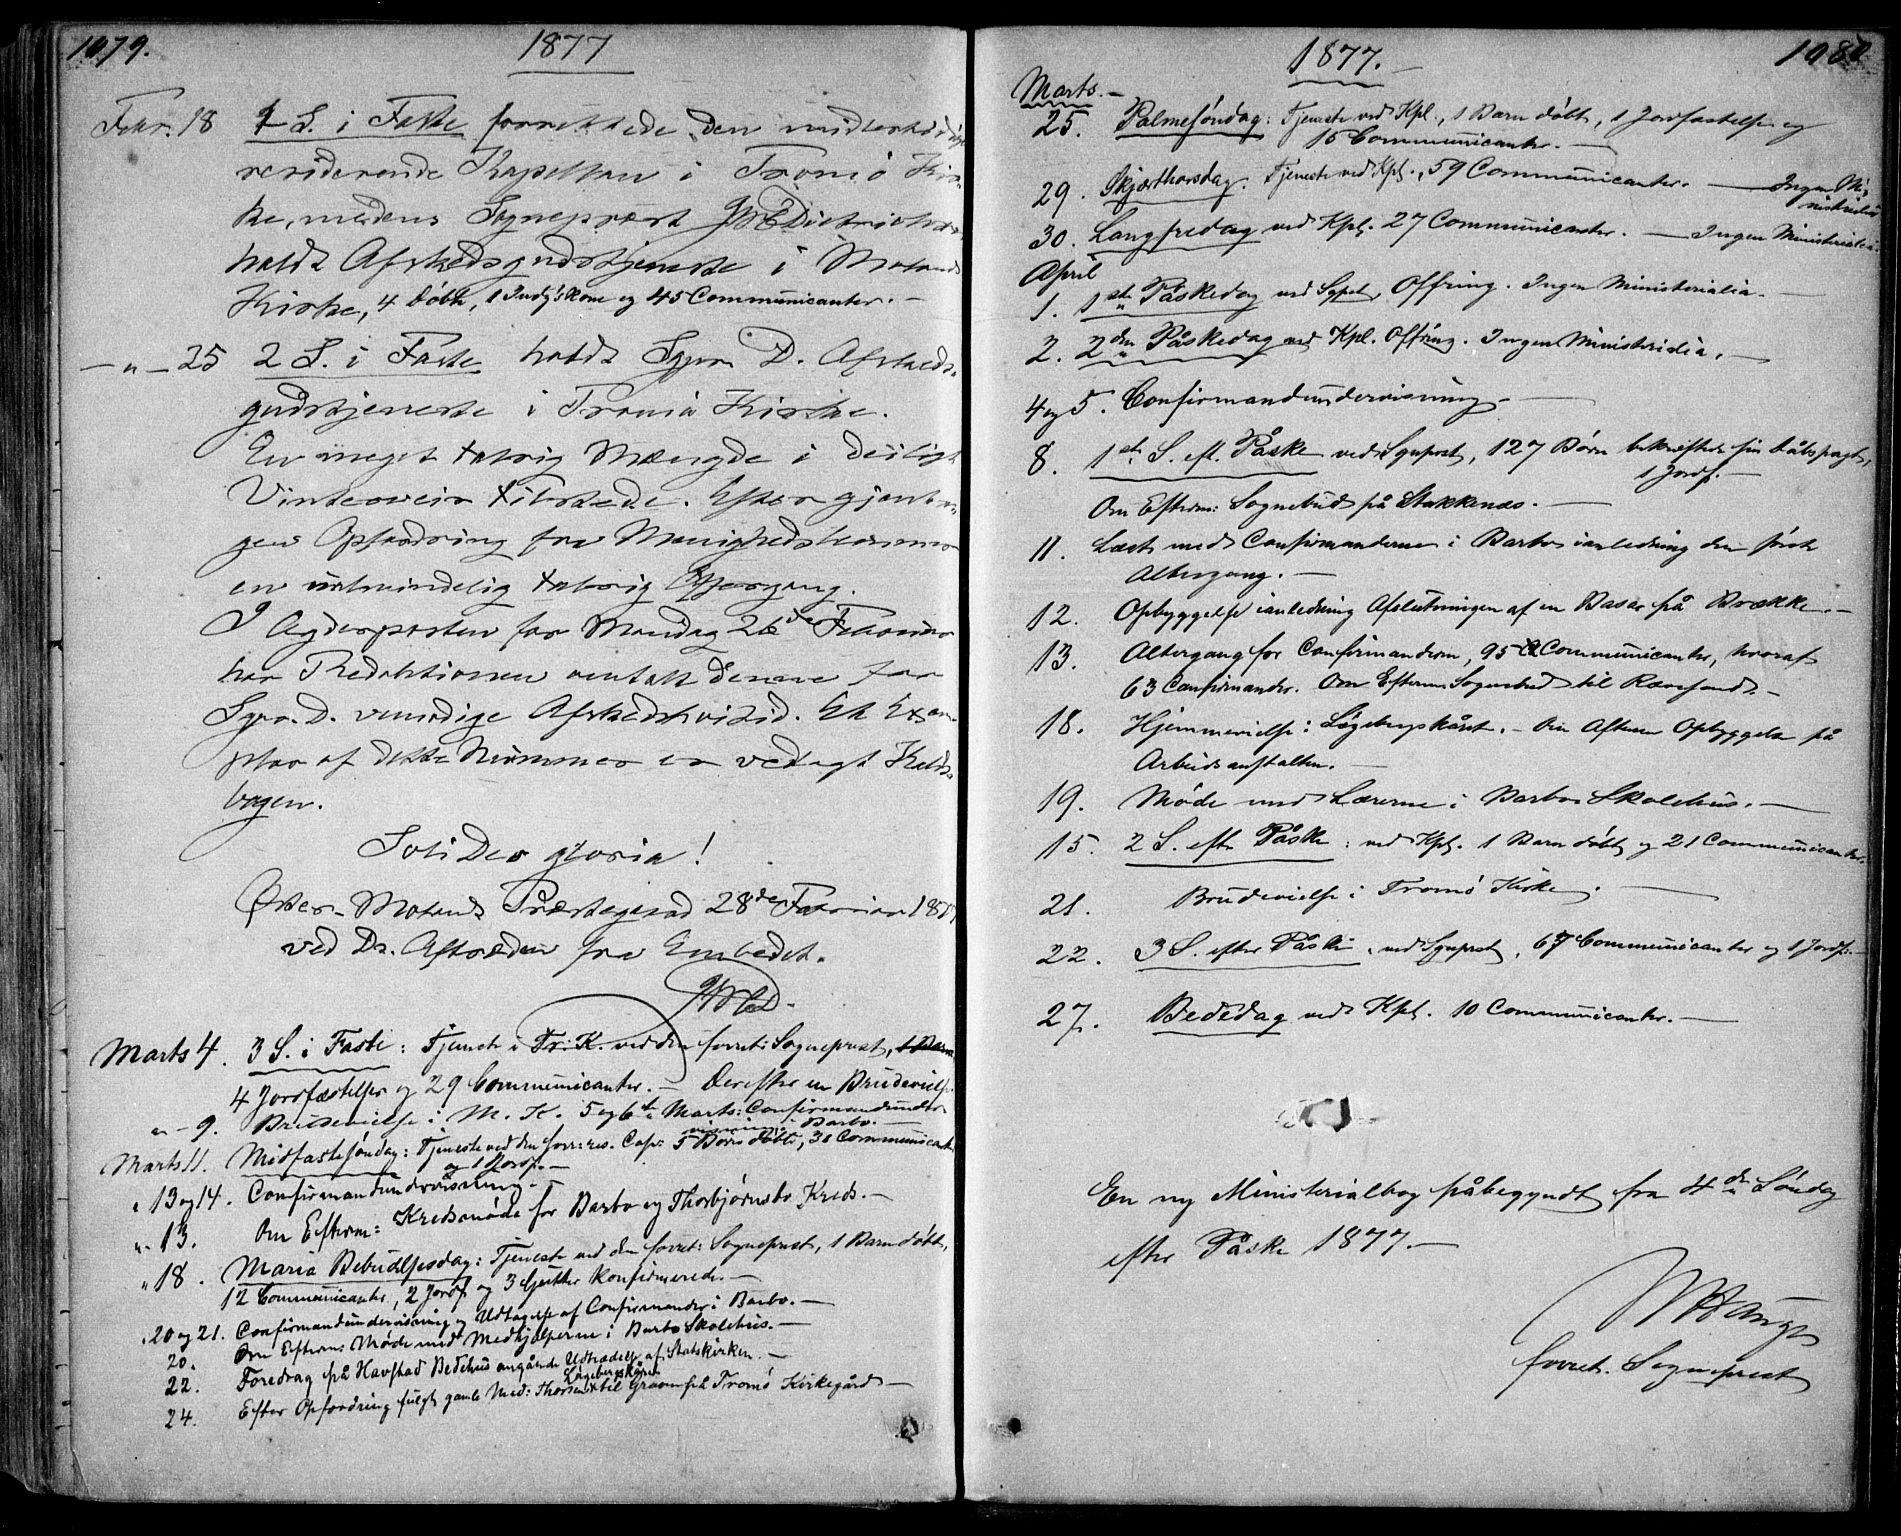 1079.
1877
Febr. 18 1 S. i Faste forrettede den midlertidige
residerende Kapellan i Tromø Kir-
ke, medens Sognepræst
holdt Afskedsgudstjeneste i Moland
Kirke, 4 døbte, 1 Indg: Kone og 45 Communicanter. -
— " — 25 2 S. i Faste holdt Sgpr. D. Afskeds-
gudstjeneste i Tromø Kirke.
En meget talrig Mængde i deiligt
Vinterveir tilstede. Efter gjent-
gen Opfordring fra Menigheds
en ualmindelig talrig Offergang.
I Agderposten for Mandag 26de Februar
har Redaktionen omtalt denne for
Sgpr. D. Afsked. Et Exem-
plar af dette Nummer er vedlagt Kalds-
bogen.
Soli Deo gloria!
Øster-Molands Præstegaard 28de Februar 1877
ved Ds. Aftræden fra Embedet.
Marts 4. 3 S. i Faste: Tjeneste i Tr. K. ved den forret: Sogneprest, 1 Barn
4 Jordfæstelser og 29 Communicanter. — Derefter en Brudevielse
" - 9. Brudevielse i M. K. 5 og 6te Marts: Confirmandunder-
visning i Barbo. —
Marts 11. Midfastesøndag: Tjeneste ved den forr: res. Cap: 5 Børn døbte, 30 Communicanter
og 1 Jordf. —
" 13 og 14. Confirmandundervisning. —
" - 13. Om Efterm: Kredsmøde for Barbo og Thorbjørnsbo Kreds. —
" 18. Maria Bebudelsesdag: Tjeneste ved den forret: Sogneprest, 1 Barn døbt,
12 Communicanter, 2 Jordf. og 3 Gutter konfirmerede. —
" 20 og 21. Confirmandundervisning og Udtagelse af Confirmander i Barbo. —
20. Om Efterm: Møde med Medhjelperne i Barbo Skolehus. —
22. Foredrag på Havstad Bedehus angående Udtrædelse af Statskirken. —
Løgebergskåret
24. Efter Opfordring fulgt gamle Med: Thorsen til Graven på Tromø Kirkegård —
1877. —
1080
Marts. —
25. Palmesøndag: Tjeneste ved Kpl., 1 Barn døbt, 1 Jordfæstelse og
15 Communicanter. —
29. Skjærthorsdag: Tjeneste ved Kpl., 59 Communicanter. — Ingen Mi-
nisterialia
30. Langfredag ved Kpl. 27 Communicanter. — Ingen Ministerialia.
April
1. 1ste Påskedag ved Sgpst, Offring. Ingen Ministerialia. —
2. 2den Påskedag ved Kpl. Offring. Ingen Ministerialia. —
4 og 5. Confirmandundervisning. —
8. 1ste S. eft. Påske ved Sgnprst, 127 Børn bekræfter sin Dåbspagt,
1 Jordf. —
Om Efterm: Sognebud på Stokkenæs. —
11. Læst med Confirmanderne i Barbo i anledning den første
Altergang. —
12. Opbyggelse i anledning Afslutningen af en Basar på Brække. —
13. Altergang for Confirmanderne, 95 Communicanter, hvoraf
63 Confirmander. Om Efterm. Sognebud til Rævesand. —
18. Hjemmevielse i Løgebergskåret. — Om Aftenen Opbyggelse på
Arbeidsanstalten. —
19. Møde med Lærerne i Barbo Skolehus. —
15. 2 S. efter Påske: ved Kpl. 1 Barn døbt og 21 Communicanter.
21. Brudevielse i Tromø Kirke. —
22. 3 S. efter Påske, ved Sgnprst, 67 Communicanter og 1 Jordf. —
27. Bededag ved Kpl. 10 Communicanter. —
En ny Ministerialbog påbegyndt fra 4de Søndag
efter Påske 1877. —
forret. Sogneprest